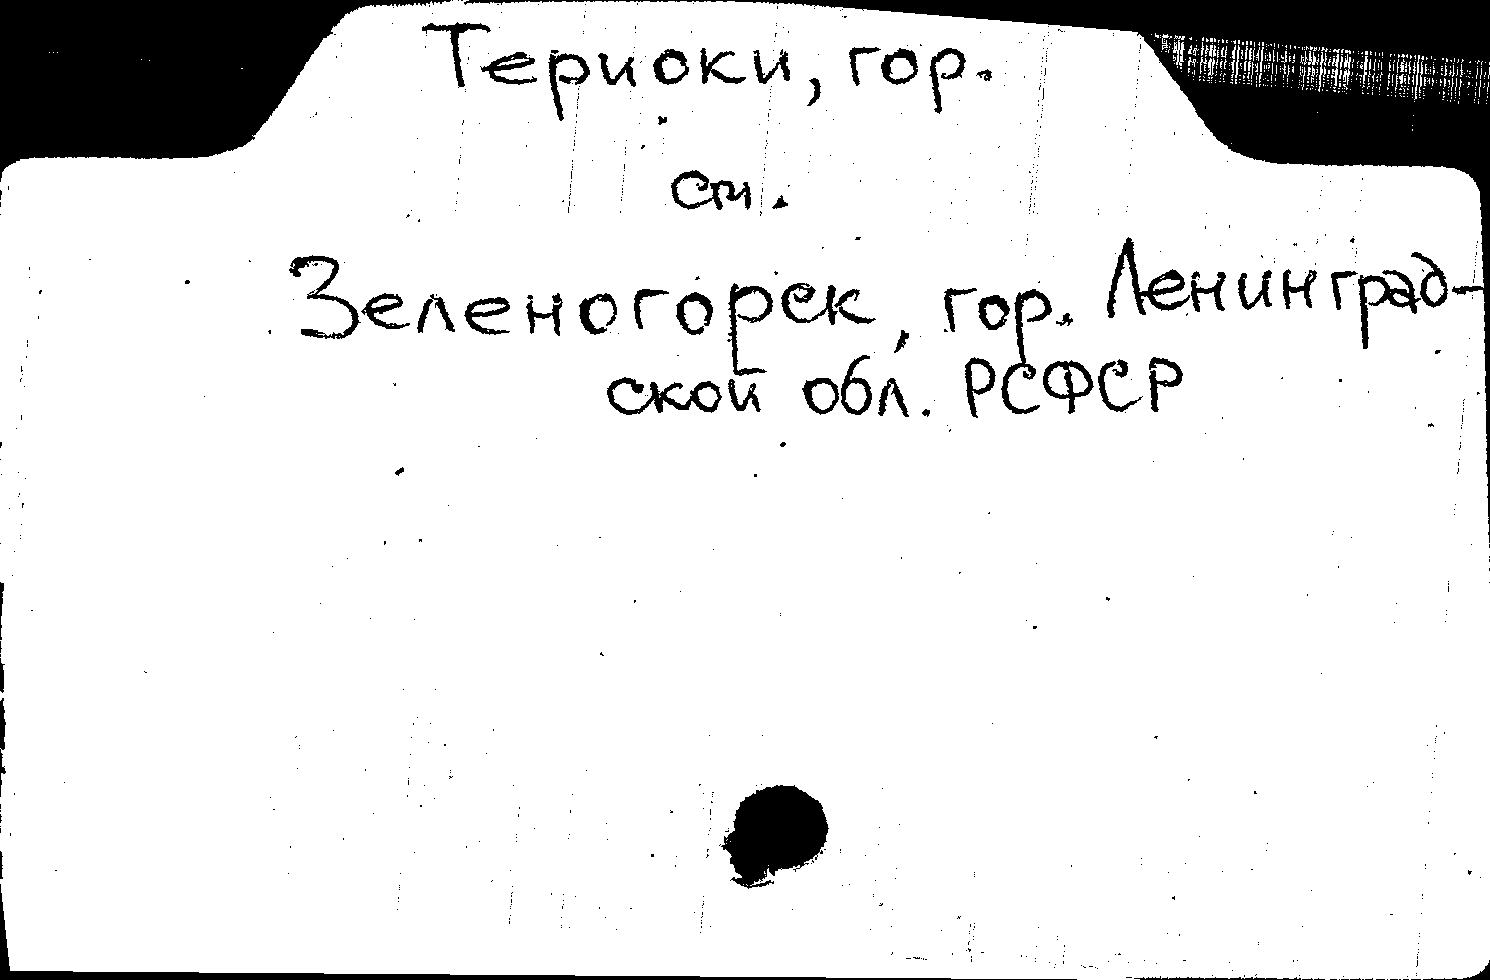 Териоки, гор.
см.
Зеленогорск, гор. Ленинград-
ской обл. РСФСР